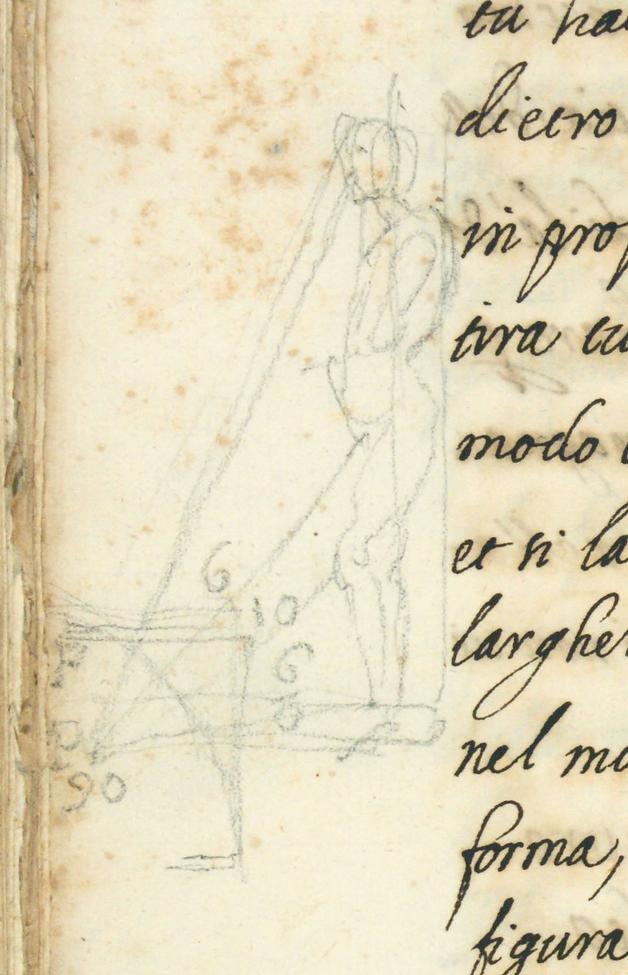 dietro
in prop
tira cu
modo
et si la
larghe
nel mo
forma,
figura
6
10
6
90